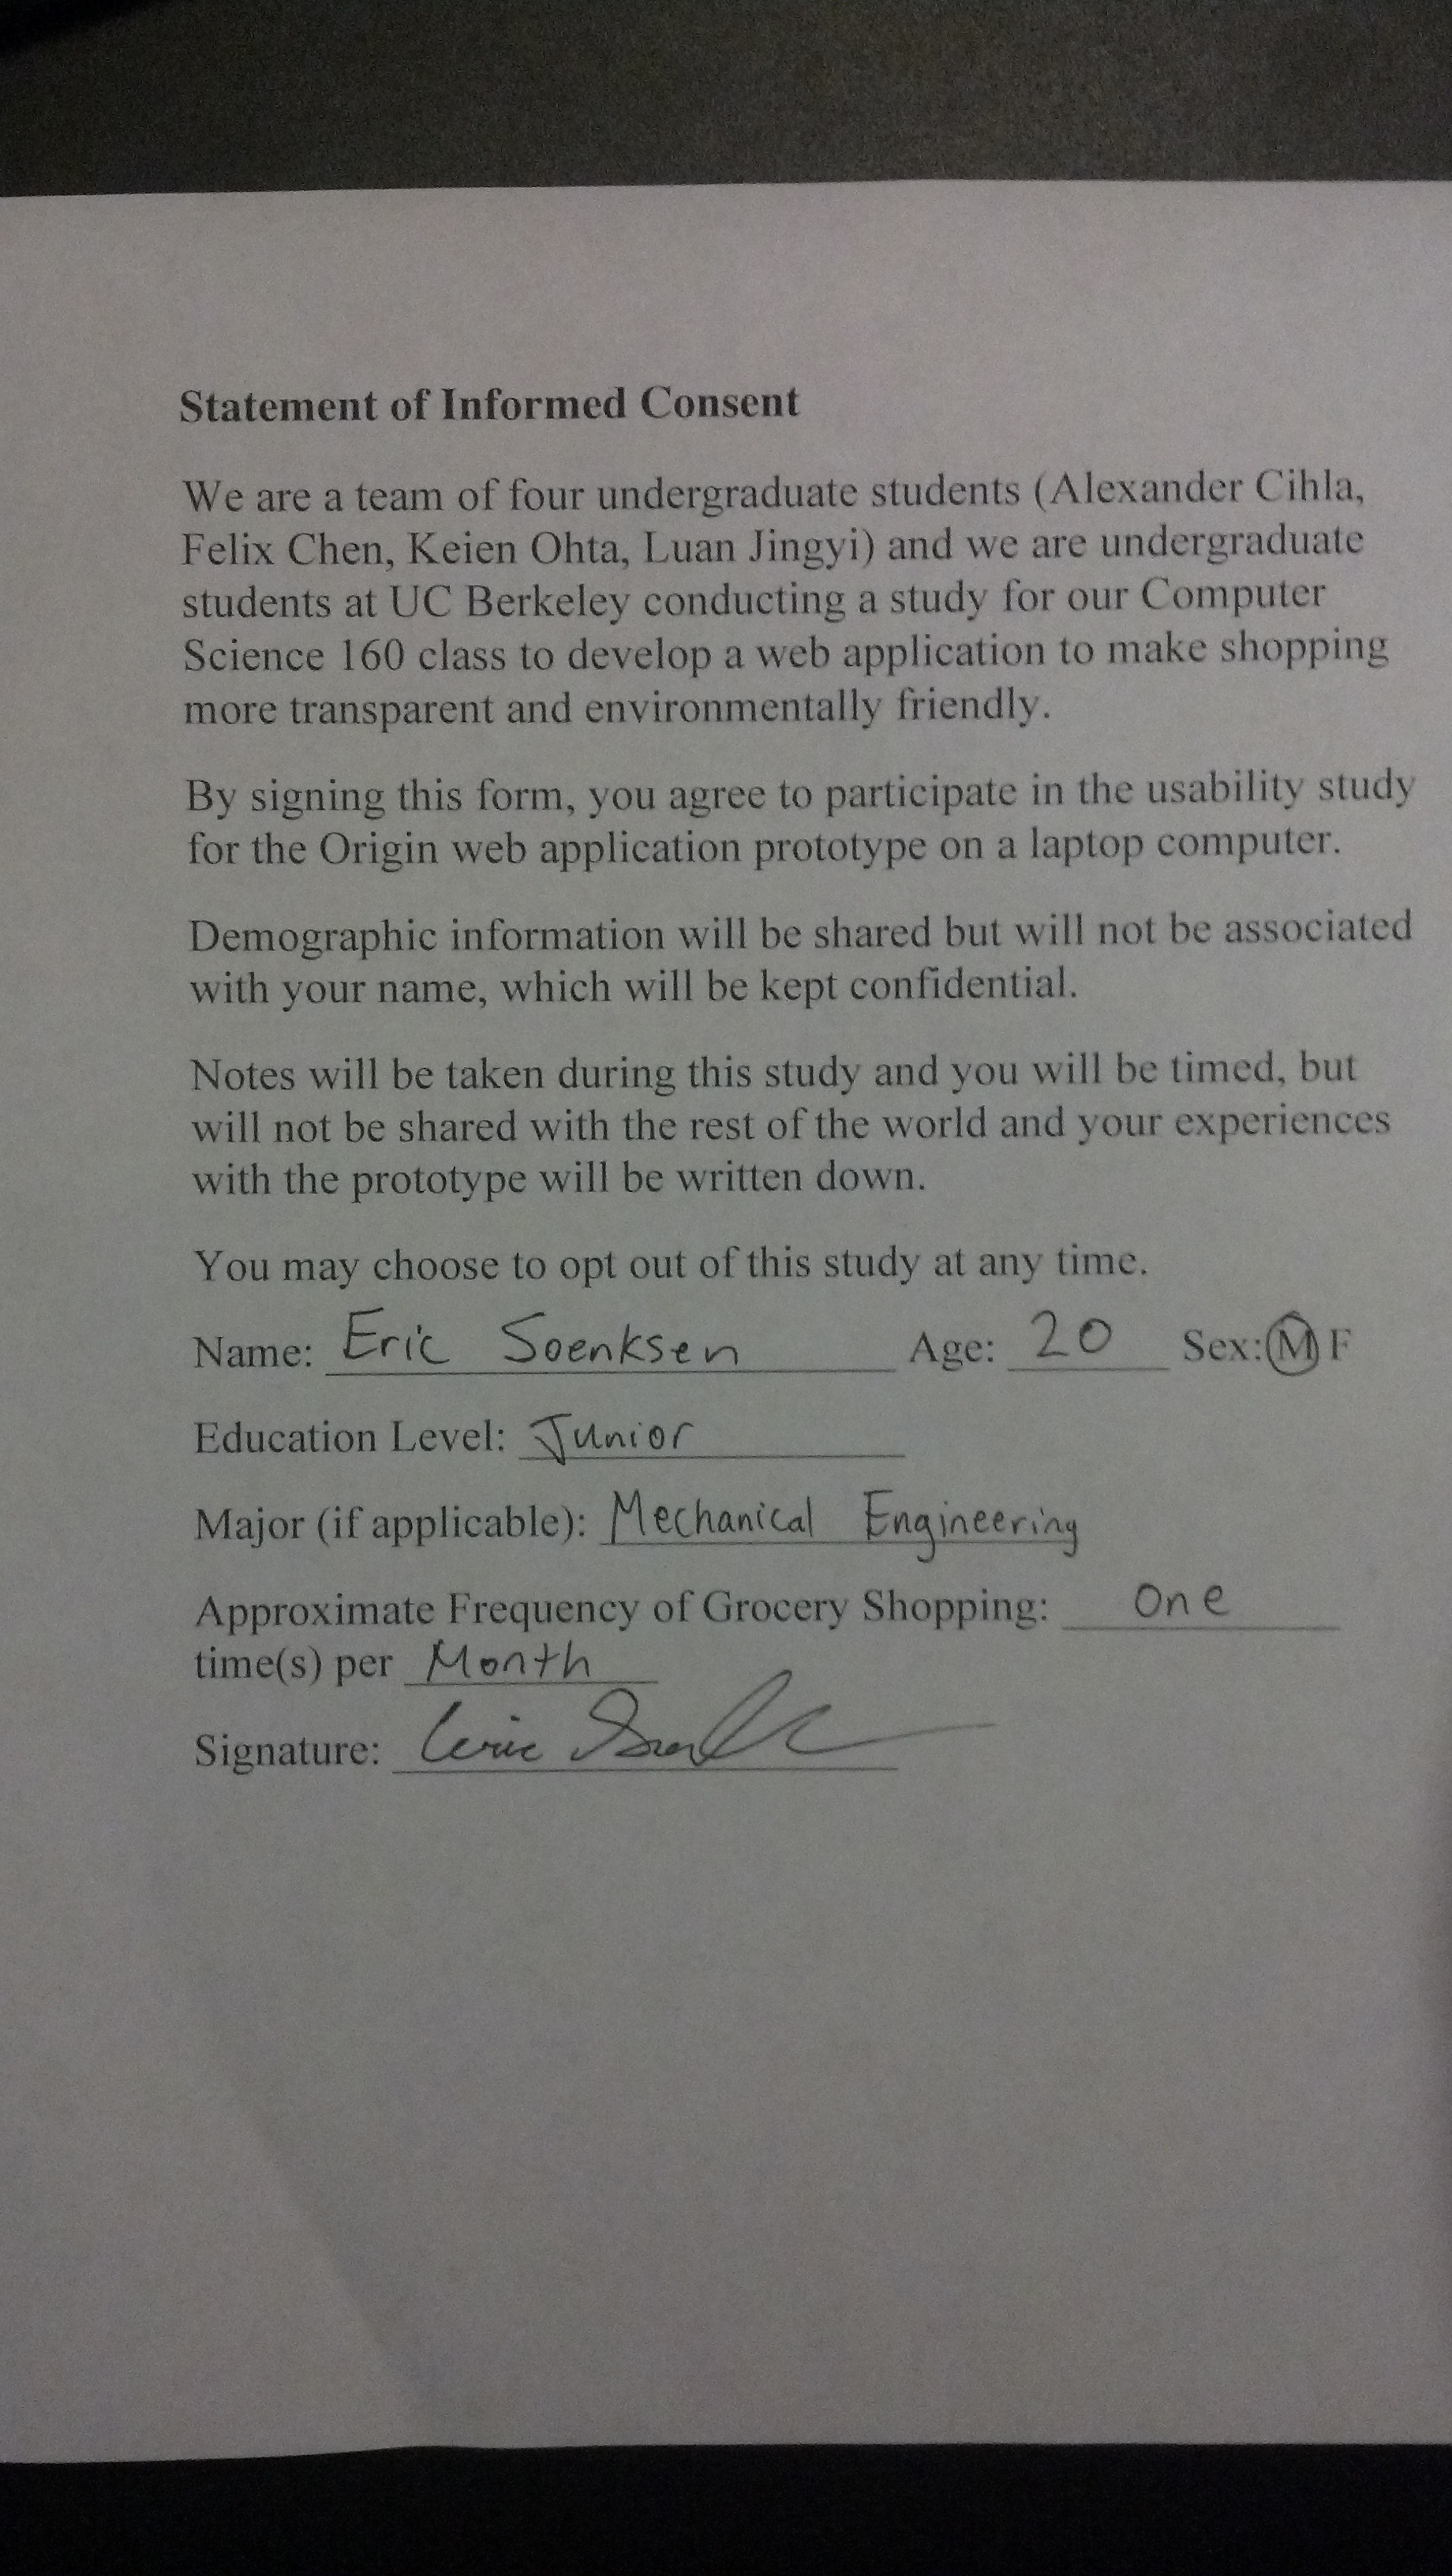 Statement of Informed Consent
We are a team of four undergraduate students (Alexander Cihla,
Felix Chen, Keien Ohta, Luan Jingyi) and we are undergraduate
students at UC Berkeley conducting a study for our Computer
Science 160 class to develop a web application to make shopping
more transparent and environmentally friendly.
By signing this form, you agree to participate in the usability study
for the Origin web application prototype on a laptop computer.
Demographic information will be shared but will not be associated
with your name, which will be kept confidential.
Notes will be taken during this study and you will be timed, but
will not be shared with the rest of the world and your experiences
with the prototype will be written down.
You may choose to opt out of this study at any time.
Name: Eric Soenksen Age: 20 Sex: M F
Education Level: Junior
Major (if applicable): Mechanical Engineering
Approximate Frequency of Grocery Shopping: One
time(s) per Month
Signature: Eric